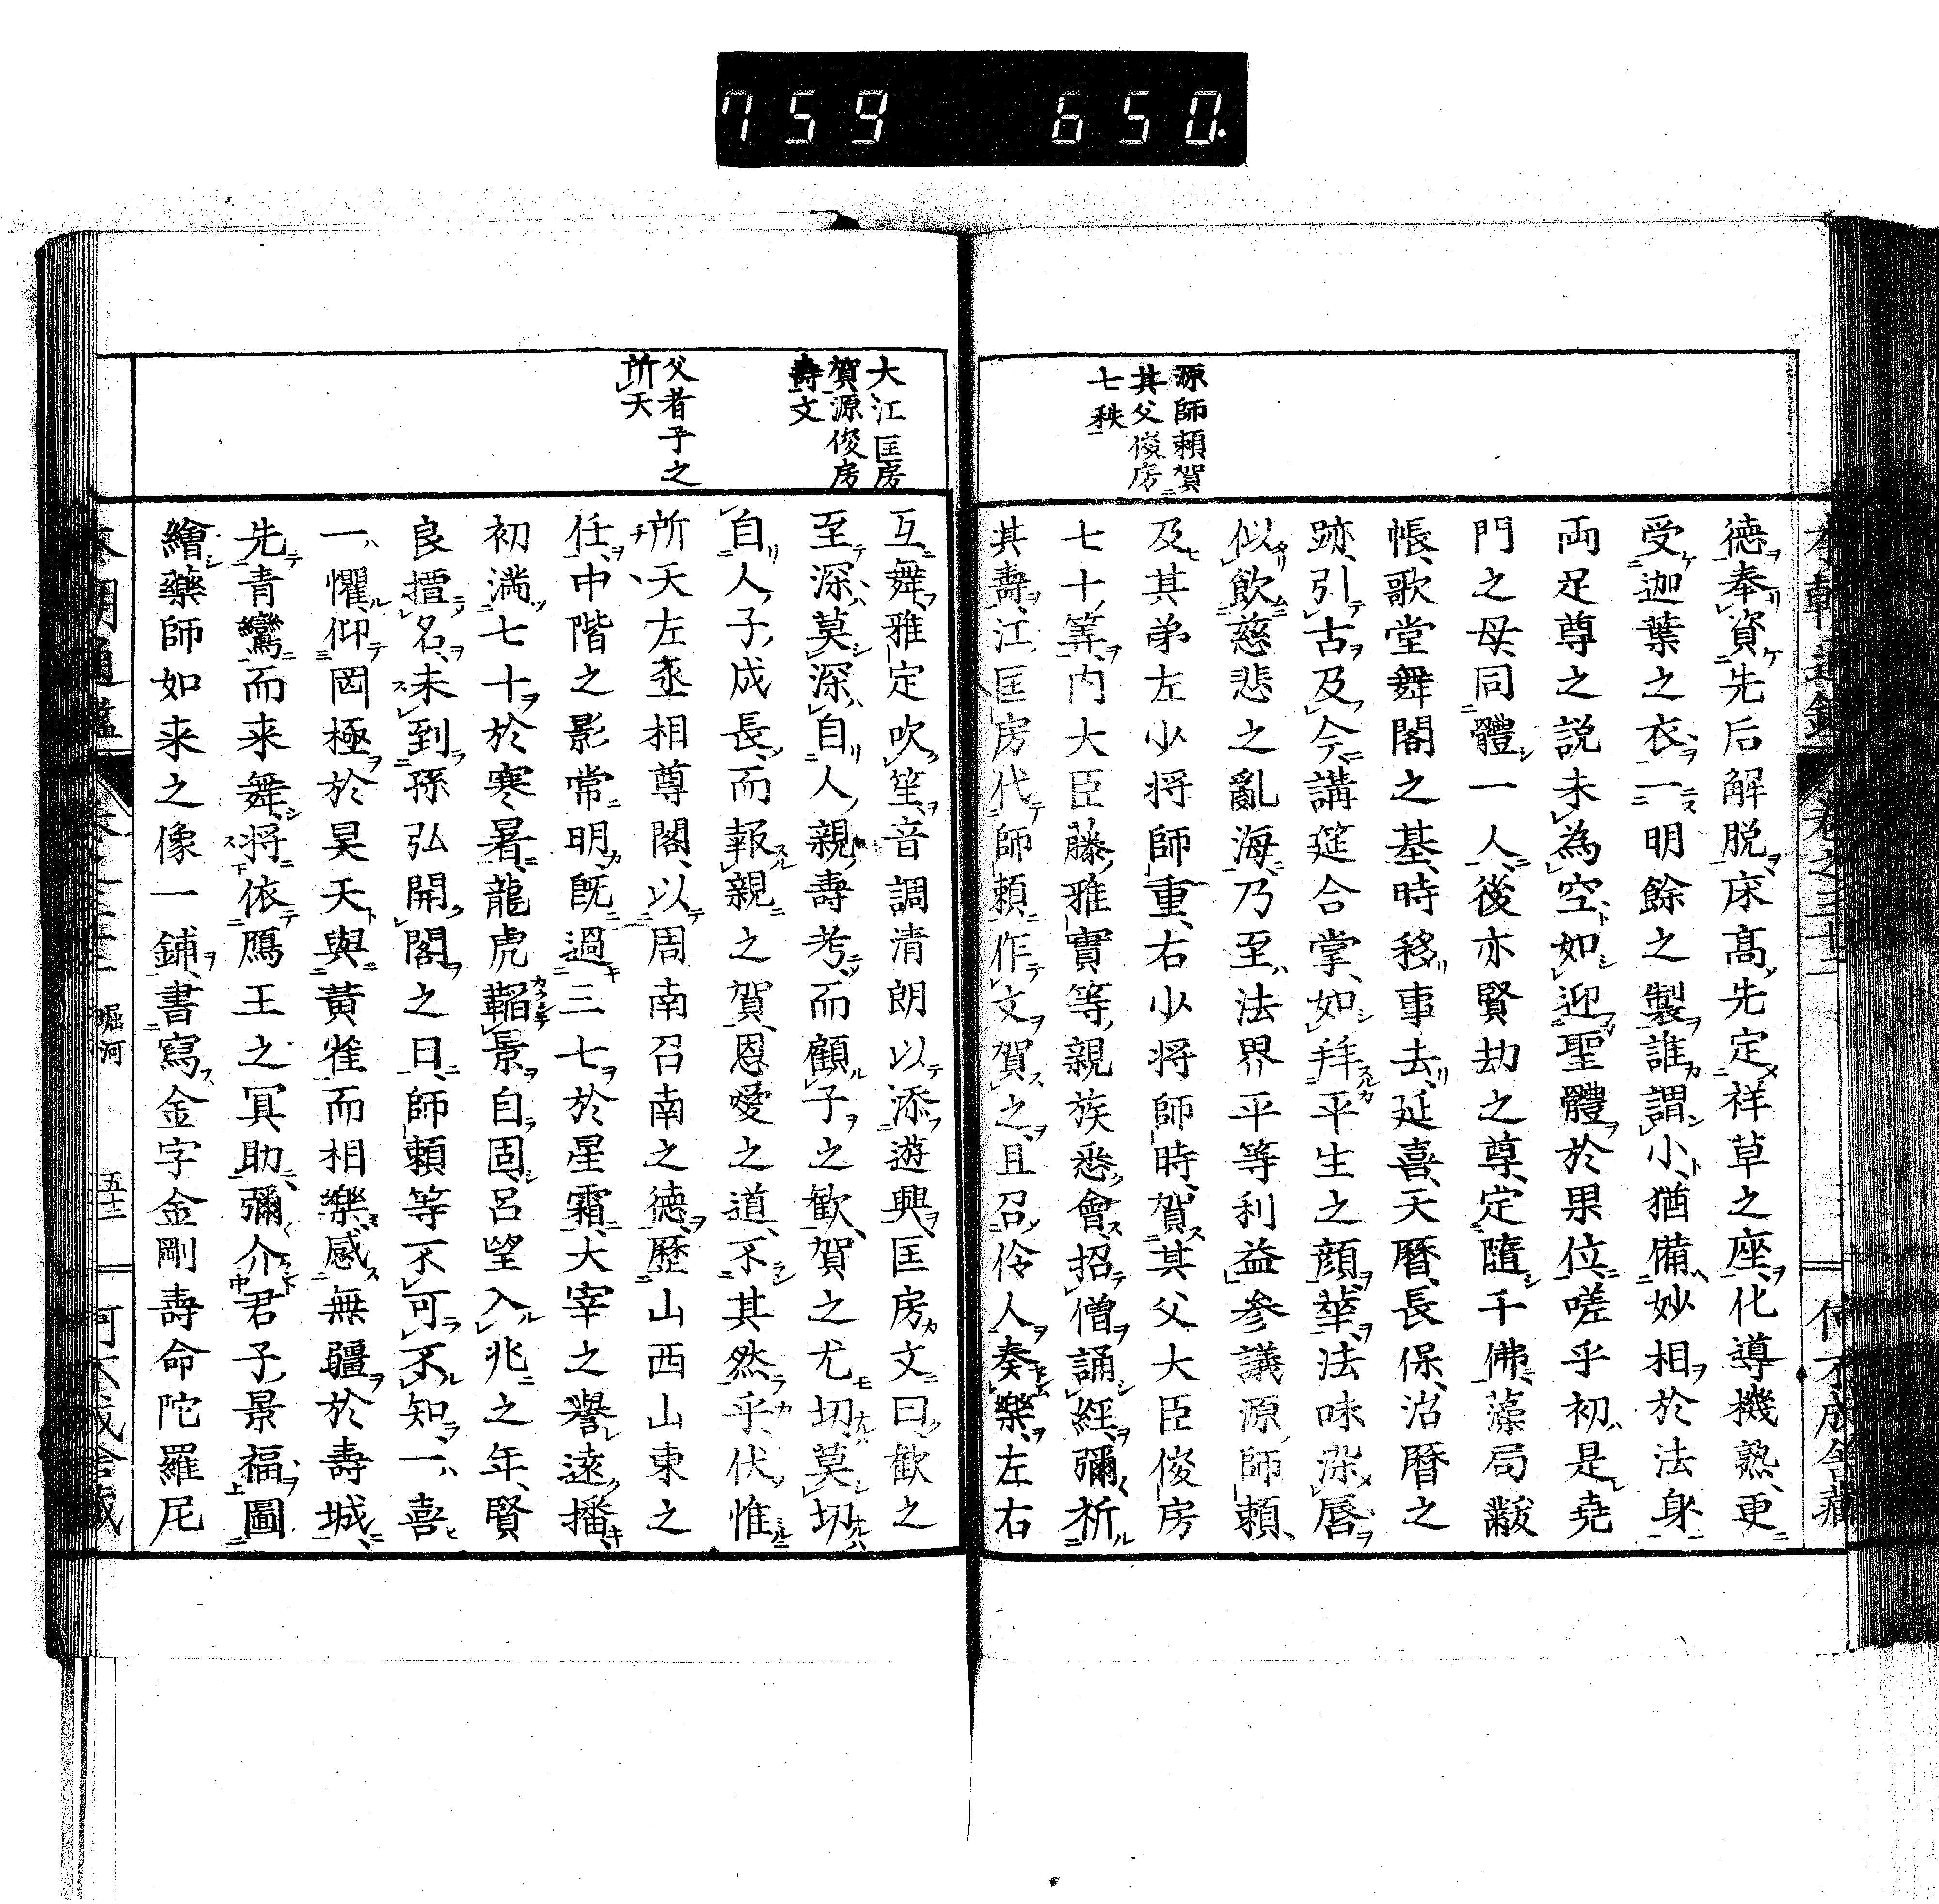 759 650.
源師頼賀
其父俊房
七秩
德奉資先后解脱床高先定祥草之座化導機熟更
受迦葉之衣一明餘之製誰謂小猶備妙相於法身
両足尊之説未為空如迎聖體於果位嗟乎初是堯
門之母同體一人後亦賢劫之尊定隨千佛藻局黻
帳歌堂舞閣之基時移事去延喜天暦長保沿暦之
跡引古及今講筵合掌如拜平生之顔蕐法味染唇
似飲慈悲之亂海乃至法界平等利益參議源師頼
及其弟左少将師重右少将師時賀其父大臣俊房
七十筭内大臣藤雅實等親族悉會招僧誦經彌祈
其壽江匡房代師頼作文賀之且召伶人奏樂左右
大江匡房
賀源俊房
壽文
父者子之
所天
互舞雅定吹笙音調清朗以添遊興匡房文曰歓之
至深莫深自人親壽考而顧子之歓賀之尤切莫切
自人子成長而報親之賀恩愛之道不其然乎伏惟
所天左丞相尊閣以周南召南之德歷山西山東之
任中階之影常明既過三七於星霜大宰之譽遠播
初満七十於寒暑龍虎韜景自固呂望入兆之年賢
良擅名未到孫弘開閣之日師頼等不可不知一喜
一懼仰罔極於昊天與黄雀而相樂感無疆於壽城
先青鸞而来舞将依鴈王之冥助彌介君子景福圖
繪藥師如来之像一鋪書寫金字金剛壽命陀羅尼
堀河
五十二